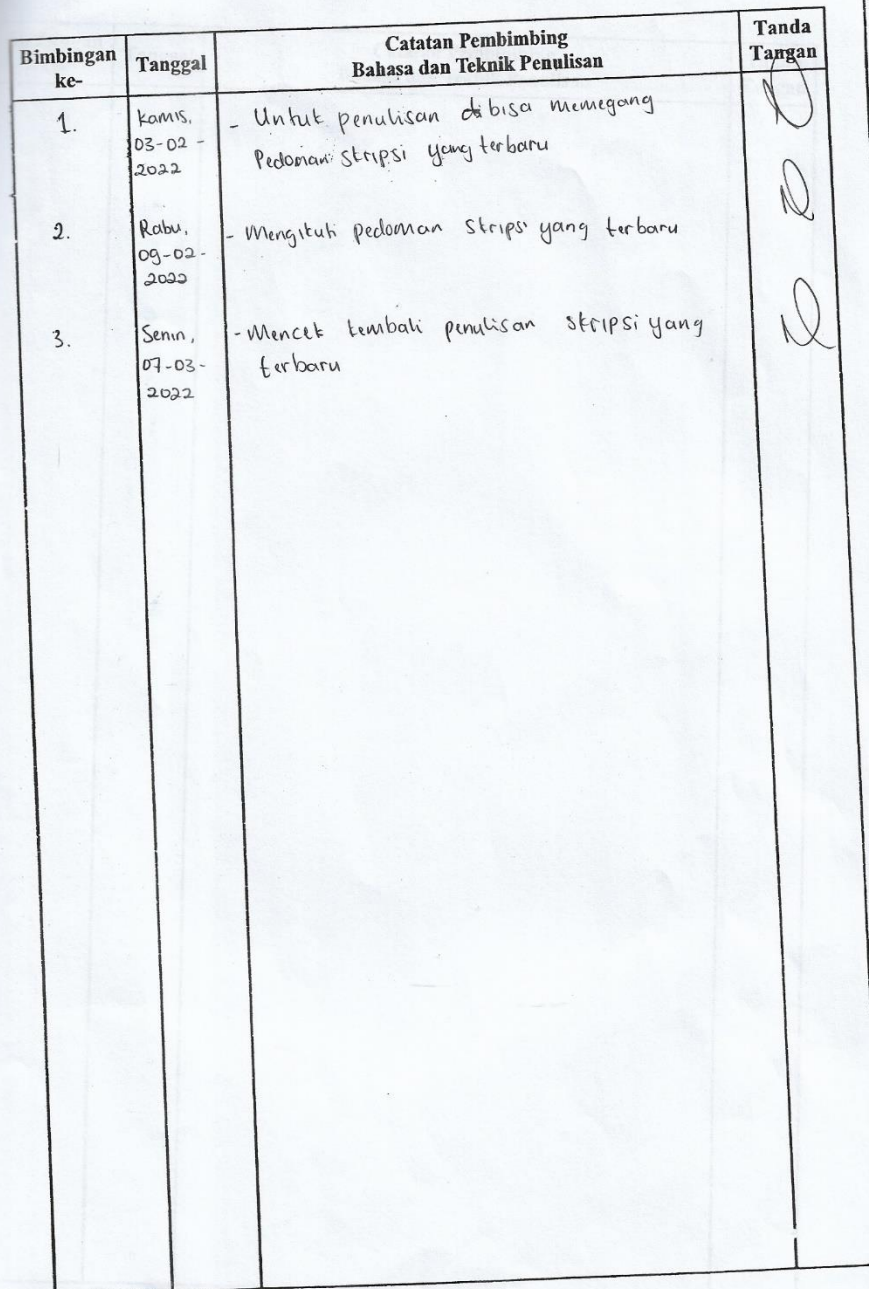 Bimbingan ke-
Tanggal
Catatan Pembimbing
Bahasa dan Teknik Penulisan
Tanda Tangan
1.
Kamis,
03-02-
2022
- Untuk penulisan bisa memegang
Pedoman skripsi yang terbaru
2.
Rabu,
09-02-
2022
- Mengikuti pedoman skripsi yang terbaru
3.
Senin,
07-03-
2022
- Mencek kembali penulisan skripsi yang
terbaru